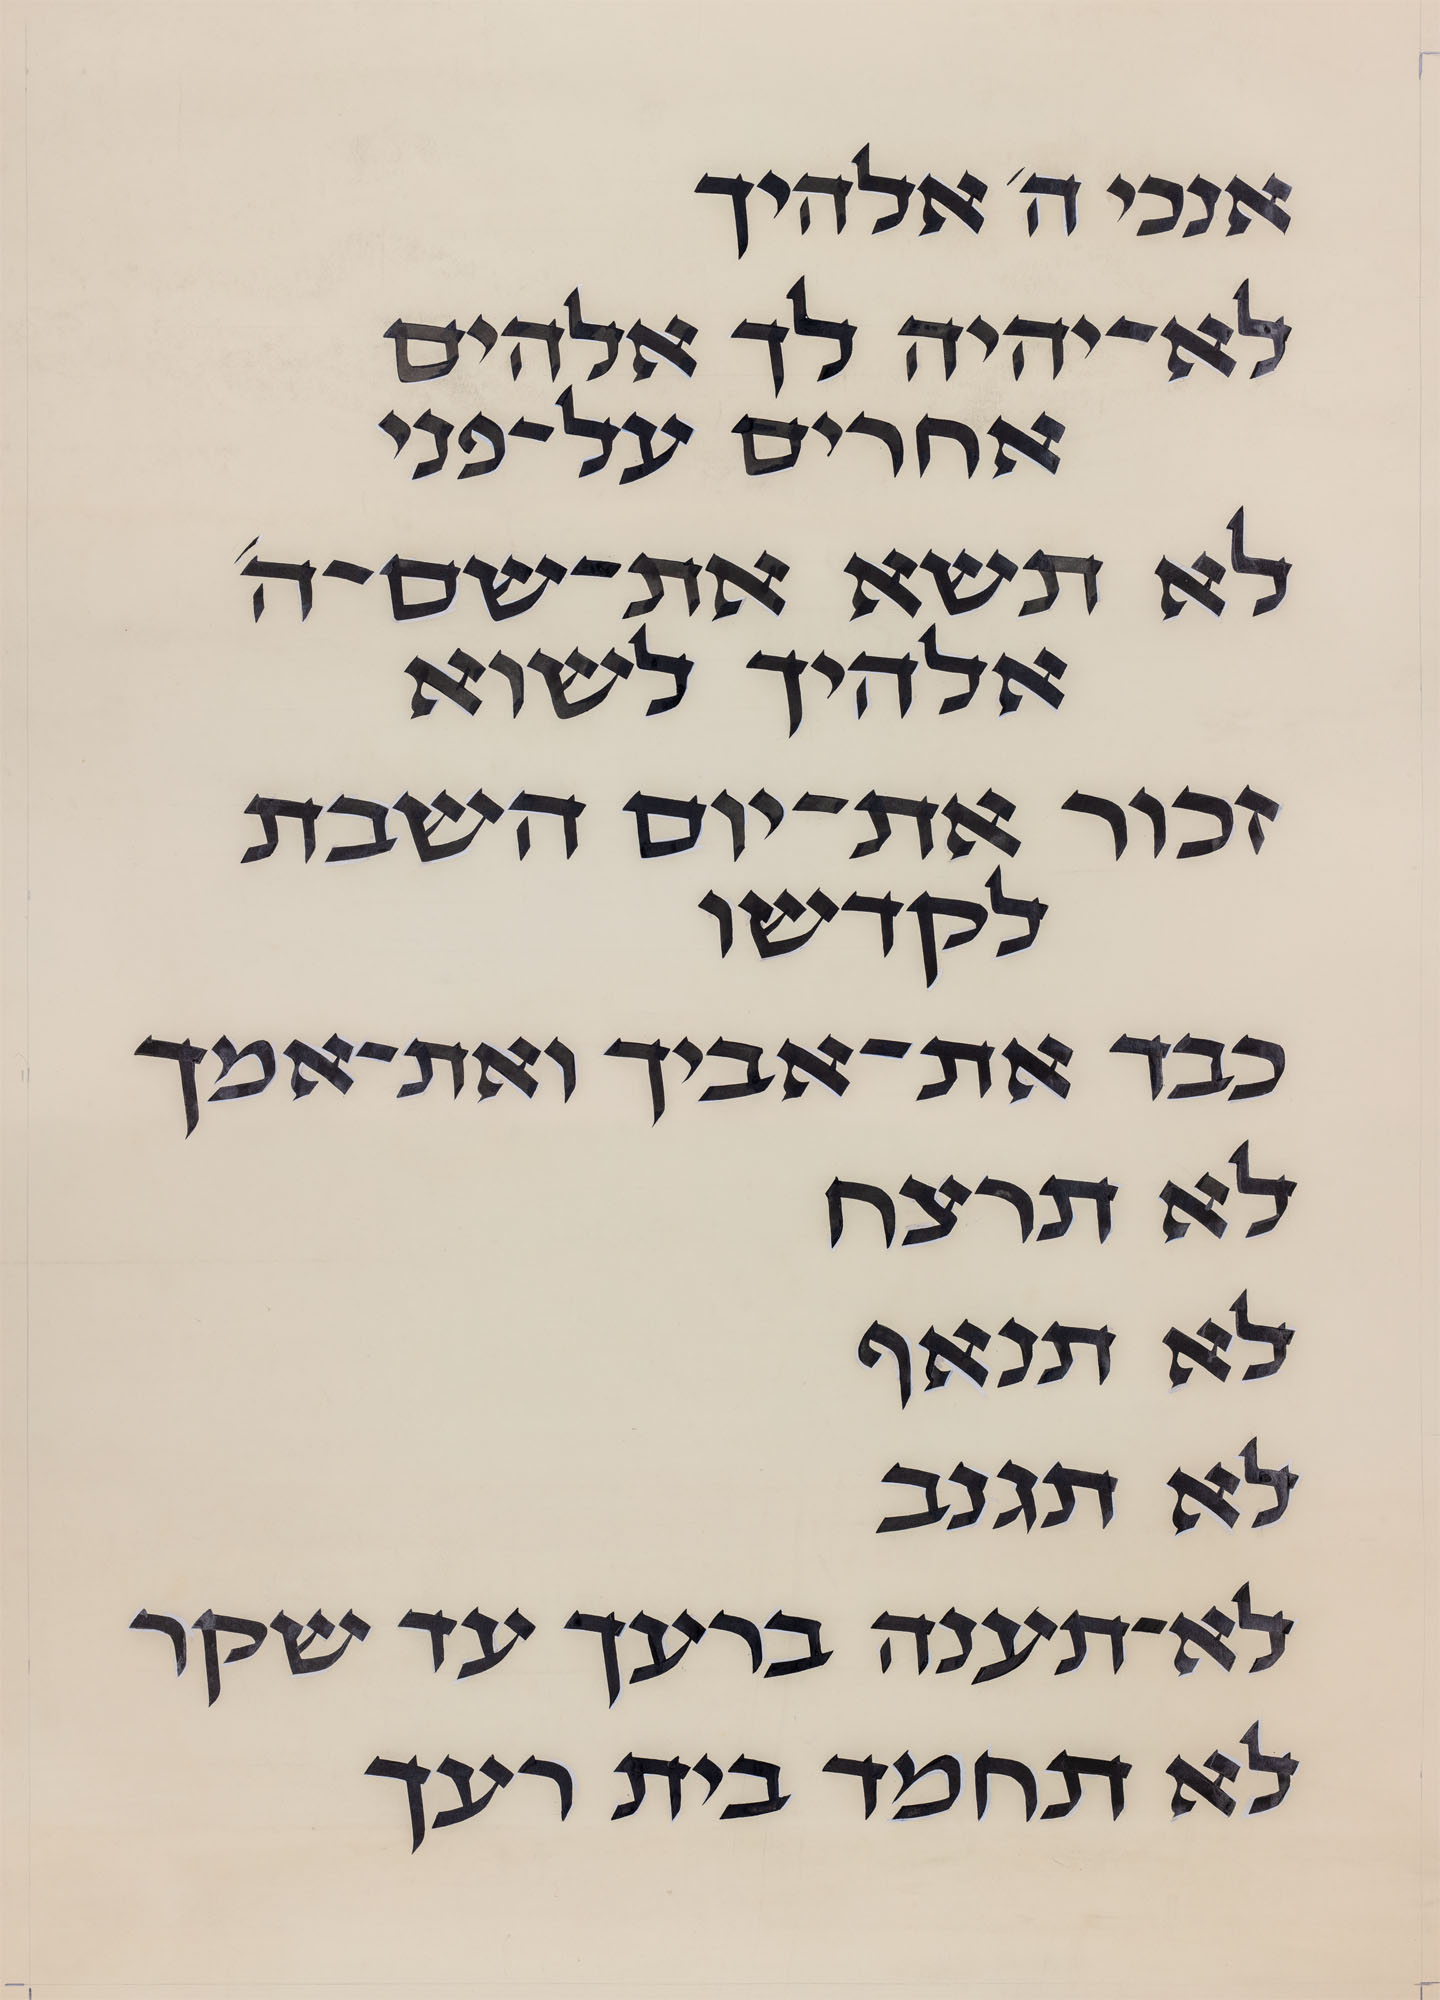 אנכי ה׳ אלהיך
לא־יהיה לך אלהים
אחרים על־פני
לא תשא את־שם־ה׳
אלהיך לשוא
זכור את־יום השבת
לקדשו
כבד את־אביך ואת־אמך
לא תרצח
לא תנאף
לא תגנב
לא־תענה ברעך עד שקר
לא תחמד בית רעך